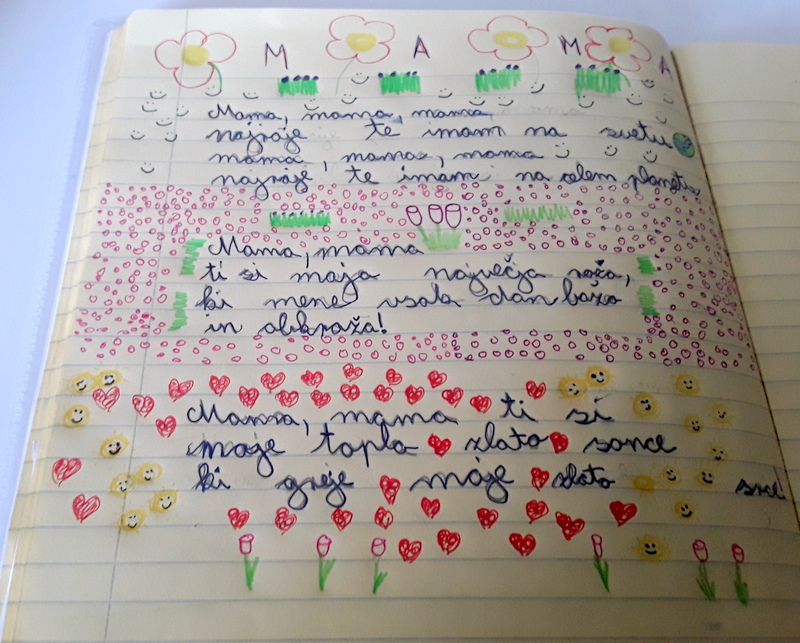 M A M A
Mama, mama, mama,
najraje te imam na svetu
mama, mama, mama
najraje te imam na celem planetu.
Mama, mama
ti si moja največja roža,
ki mene vsak dan boža
in obkroža!
Mama, mama ti si
moje toplo zlato sonce
ki greje moje zlato srcé